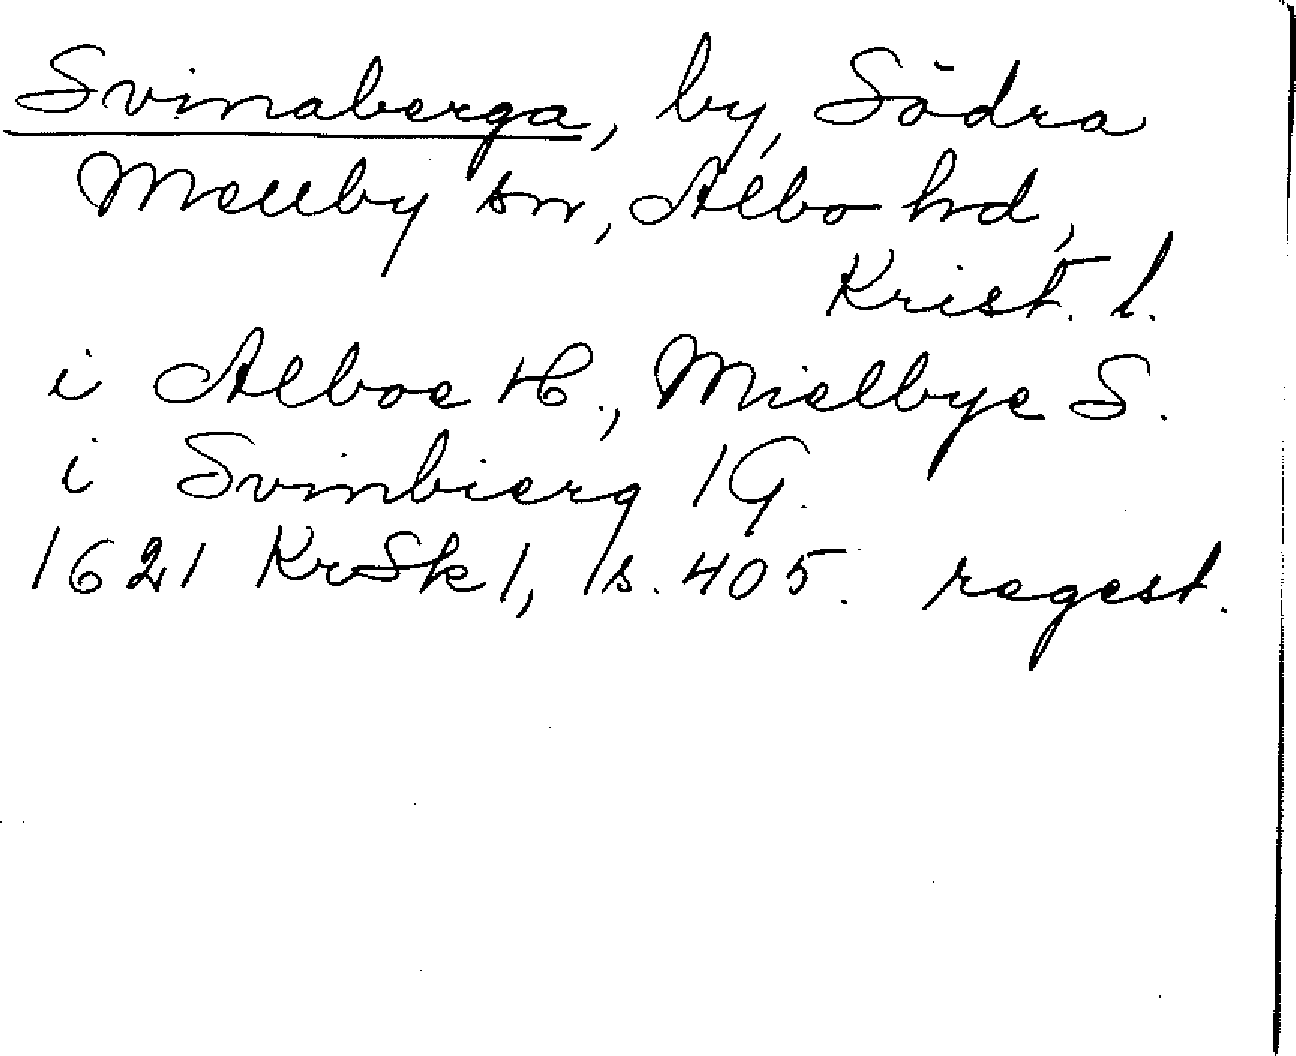 Svinaberga, by, Södra
Mellby sn, Albo hd,
Krist. l.
i Alboe H., Mielbye S.
i Svinbierg 1 G.
1621 KrSk 1, s. 405. regest.